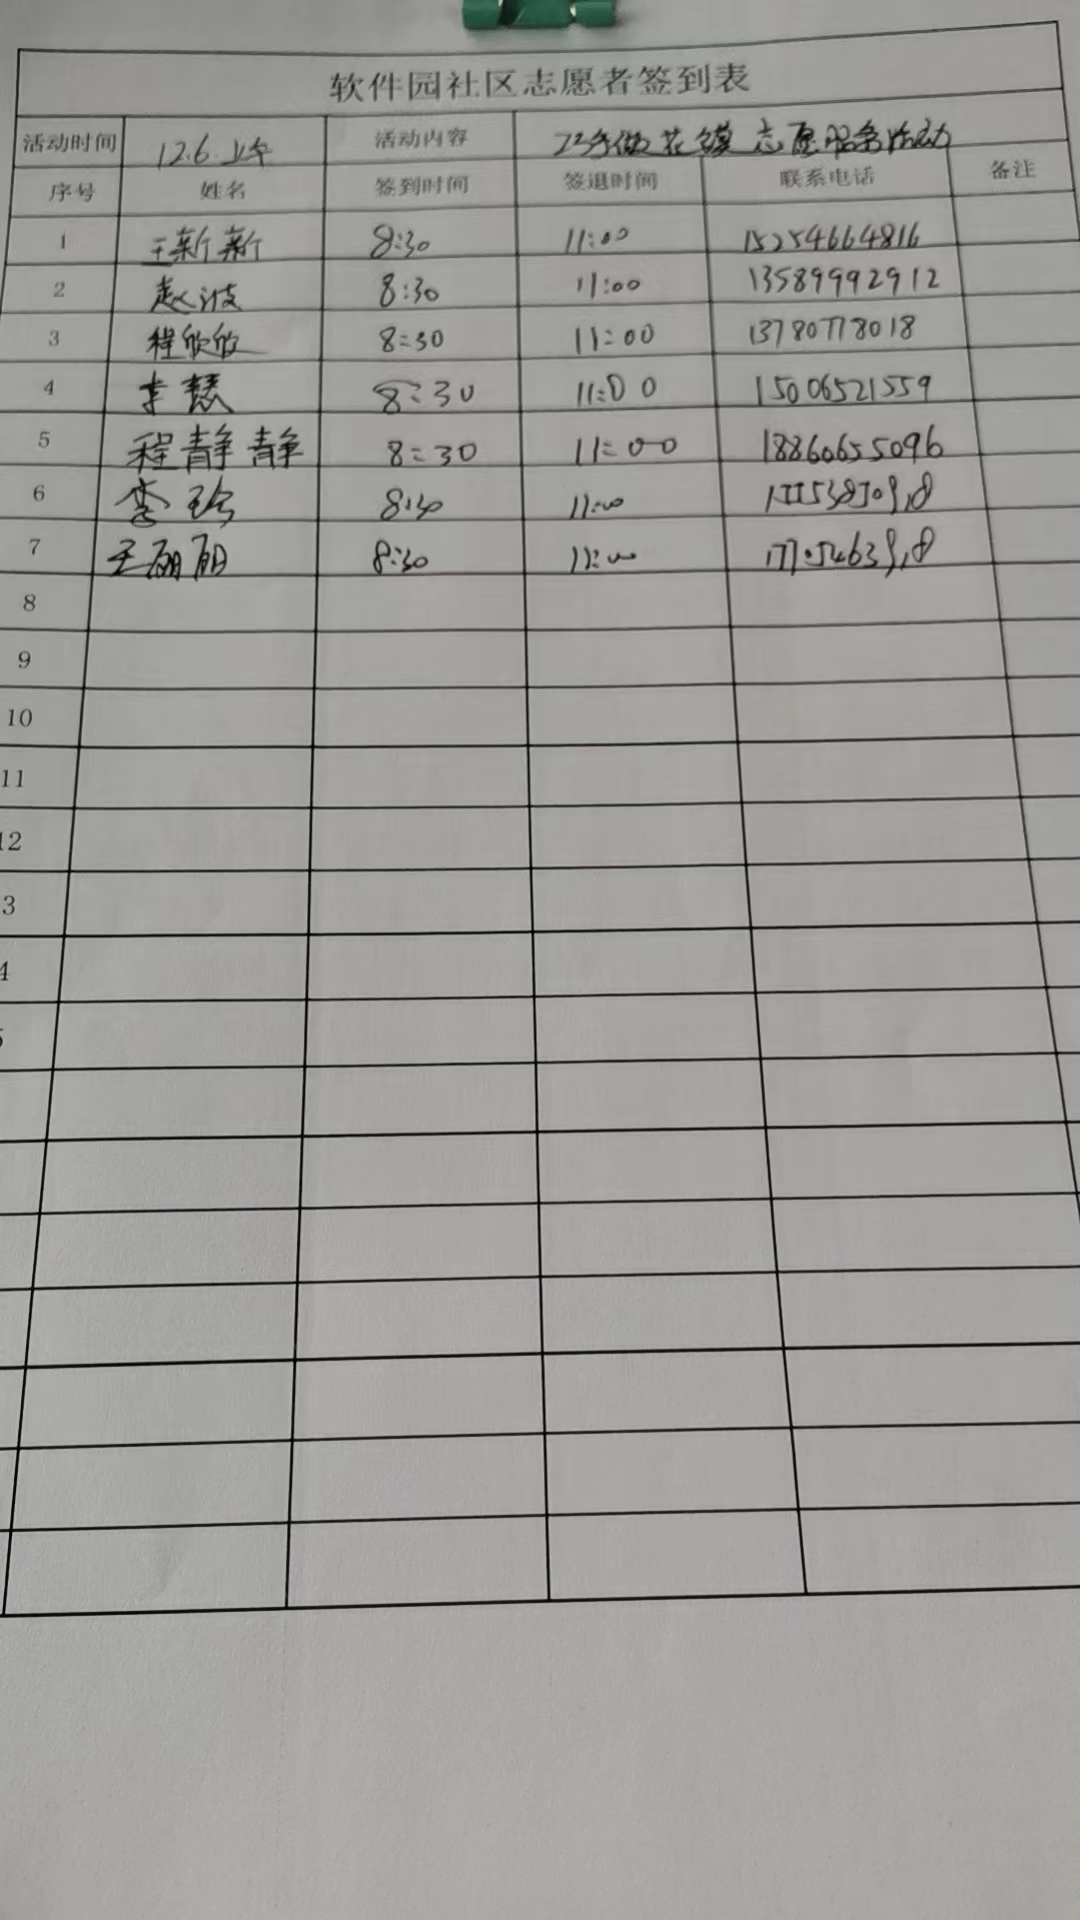 软件园社区志愿者签到表
活动时间 12.6.上午 活动内容 巧手做花馍 志愿服务活动
序号 姓名 签到时间 签退时间 联系电话 备注
1 王新新 8:30 11:00 15254664816
2 赵波 8:30 11:00 13589992912
3 程欣欣 8:30 11:00 13780778018
4 李慧 8:30 11:00 15006521559
5 程静静 8:30 11:00 18860655096
6 李玲 8:30 11:00
7 王丽丽 8:30 11:00
8
9
10
11
12
3
4
5